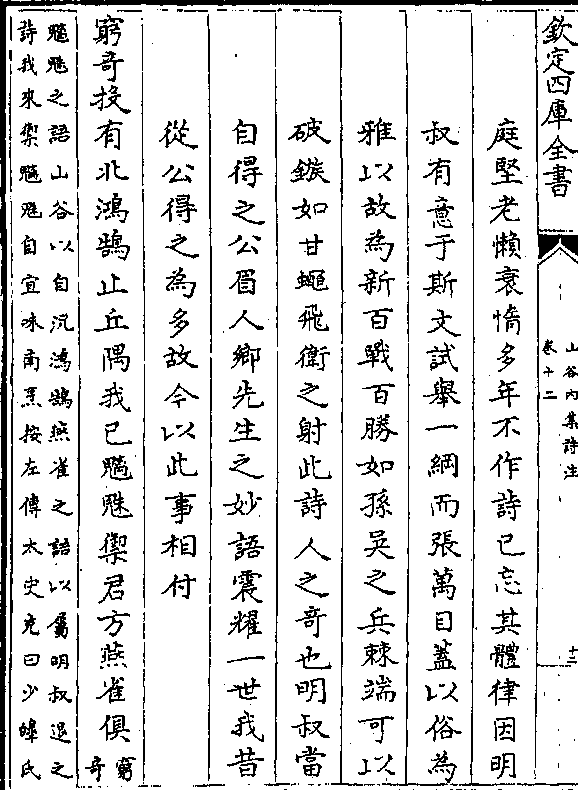 欽定四庫全書
山谷內集詩注
卷十二
十二
庭堅老懶衰惰多年不作詩已忘其體律因明
叔有意于斯文試舉一綱而張萬目蓋以俗為
雅以故為新百戰百勝如孫吳之兵棘端可以
破鏃如甘蠅飛衛之射此詩人之奇也明叔當
自得之公眉人鄉先生之妙語震耀一世我昔
從公得之為多故今以此事相付
窮奇投有北鴻鵠止丘隅我已魑魅禦君方燕雀俱窮奇
魑魅之語山谷以自況鴻鵠燕雀之語以屬明叔退之
詩我來禦魑魅自宜味南烹按左傳太史克曰少皥氏